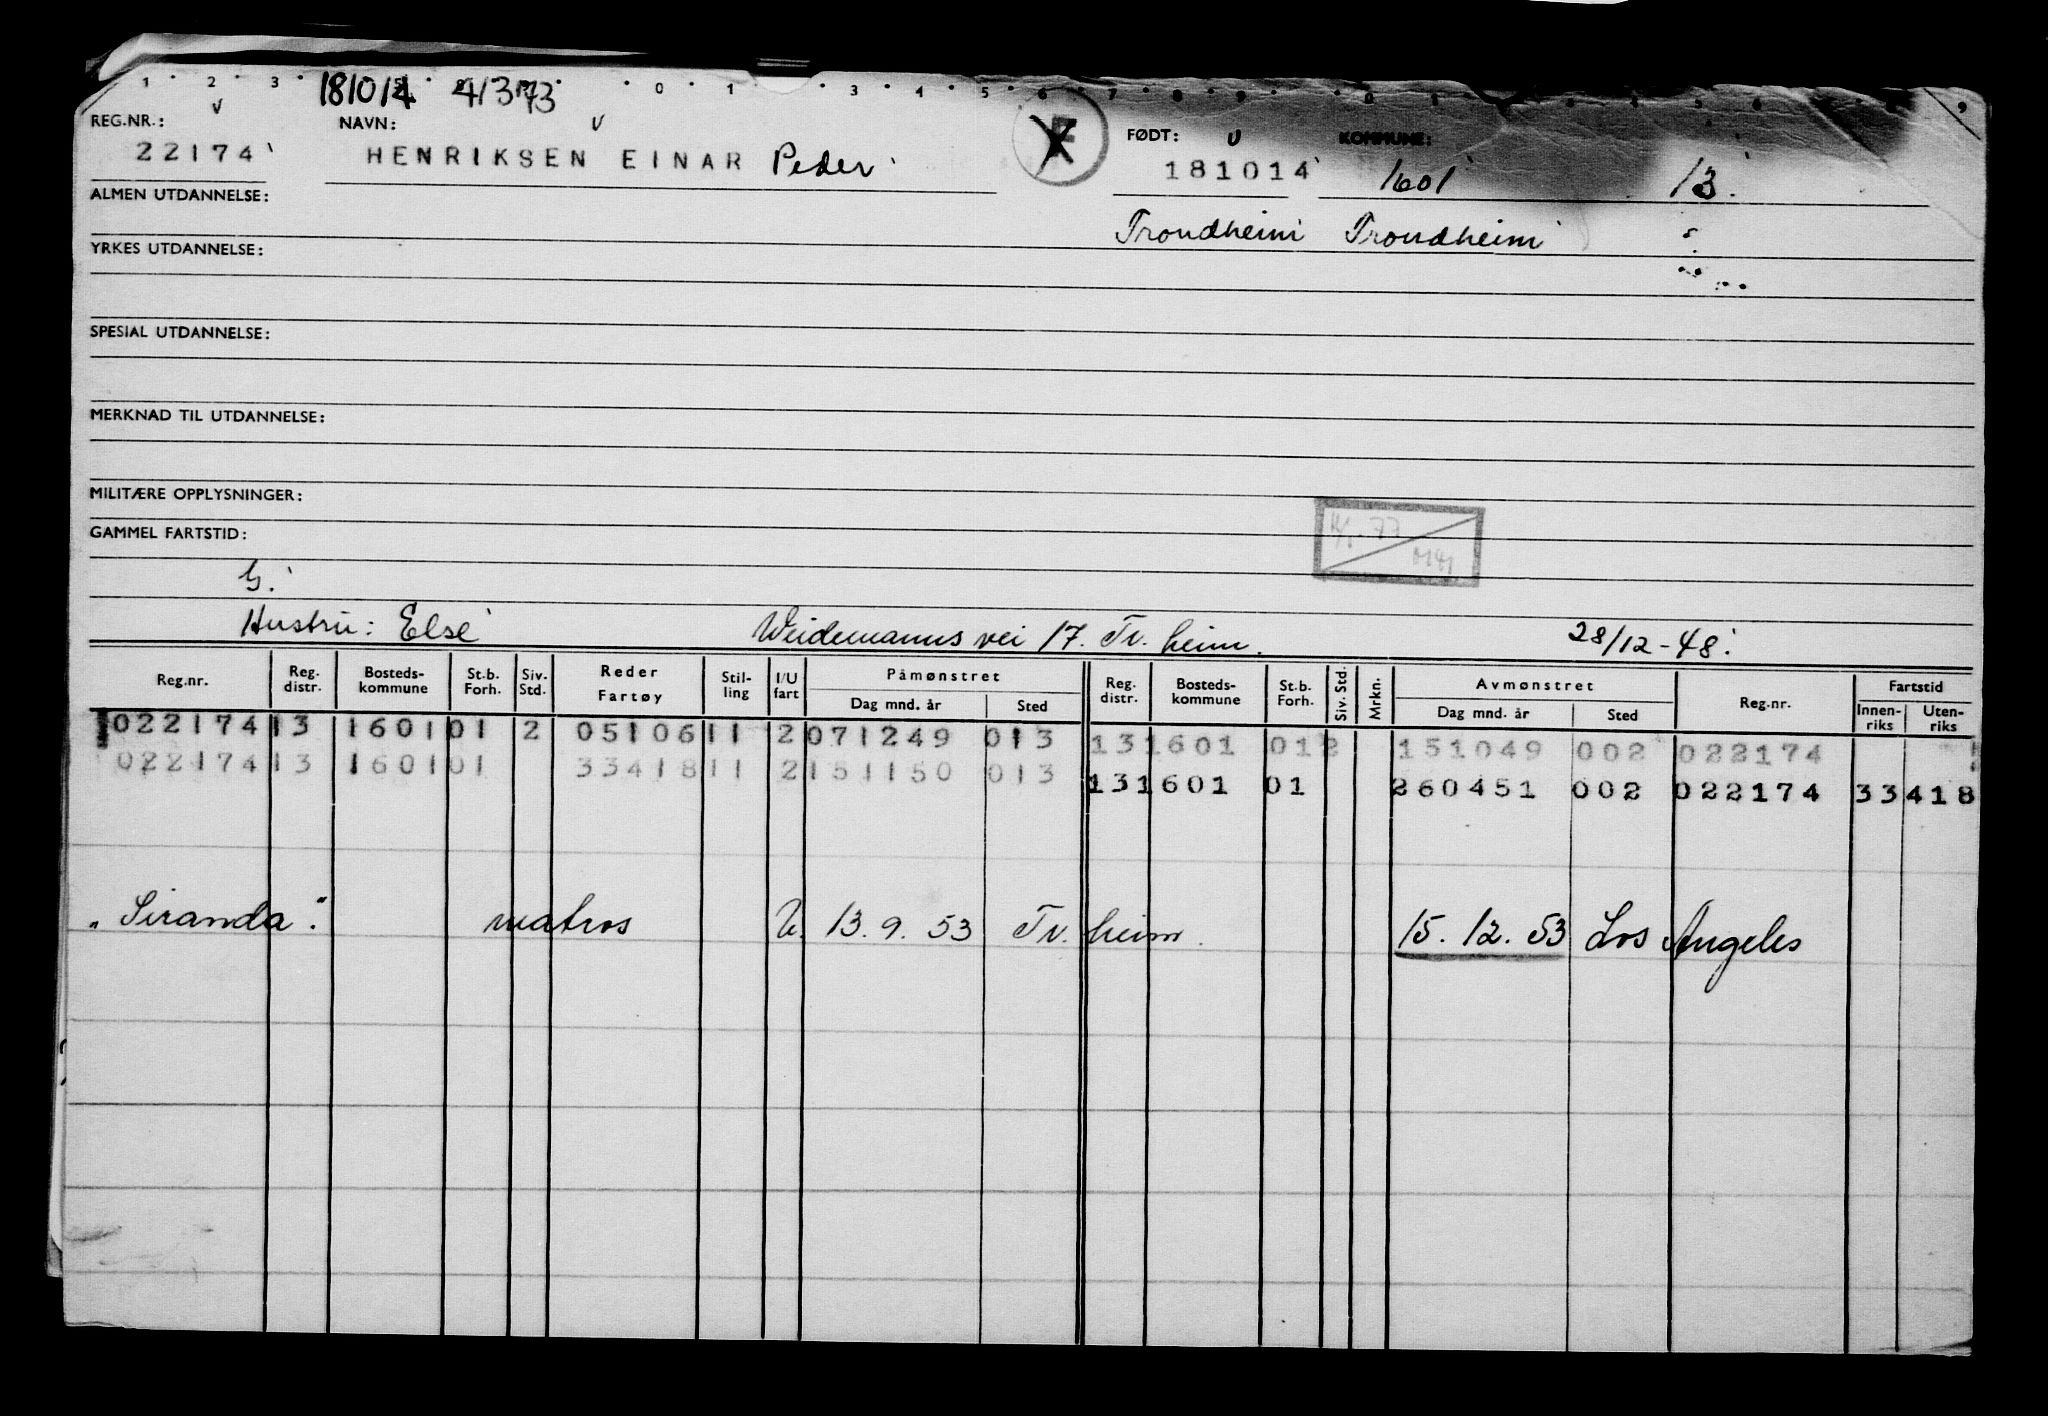 1 2 3 181014 41373 0 1 3 4 5 6 7 8 9 0 9
REG.NR.: NAVN: FØDT: KOMMUNE:
22174 HENRIKSEN EINAR Peder F 181014 1601 13.
ALMEN UTDANNELSE:
Trondheim Trondheim
YRKES UTDANNELSE:
SPESIAL UTDANNELSE:
MERKNAD TIL UTDANNELSE:
MILITÆRE OPPLYSNINGER:
GAMMEL FARTSTID:
G.
Hustru: Else Weidemanns vei 17. Tr.heim. 28/12-48.
Reg.nr. Reg. distr. Bosteds- kommune St.b. Forh. Siv. Std. Reder Fartøy Stil- ling I/U fart Påmønstret Dag mnd. år Sted Reg. distr. Bosteds- kommune St.b. Forh. Siv. Std. Mrkn. Avmønstret Dag mnd. år Sted Reg.nr. Fartstid Innen- riks Uten- riks
022174 13 1601 01 2 05106 11 2 071249 013 13 1601 01 2 151049 002 022174
022174 13 1601 01 33418 11 2 151150 013 13 1601 01 260451 002 022174 33418
"Siranda". matros U. 13.9.53 Tr.heim. 15.12.53 Los Angeles